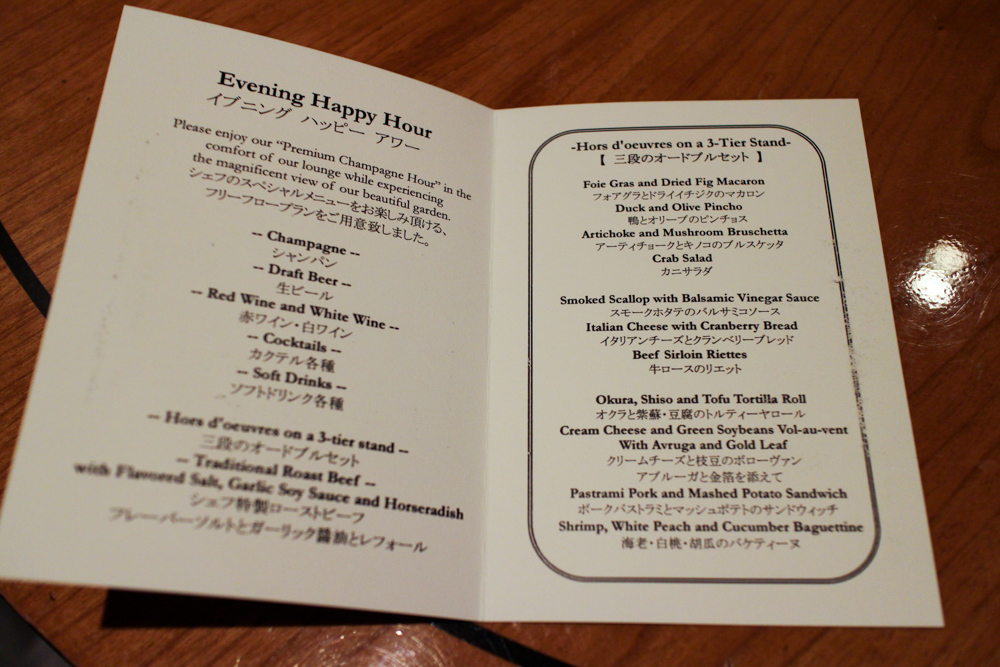 Evening Happy Hour
イブニング ハッピー アワー
Please enjoy our “Premium Champagne Hour” in the
comfort of our lounge while experiencing
the magnificent view of our beautiful garden.
シェフのスペシャルメニューをお楽しみ頂ける、
フリーフロープランをご用意致しました。
-- Champagne --
シャンパン
-- Draft Beer --
生ビール
-- Red Wine and White Wine --
赤ワイン・白ワイン
-- Cocktails --
カクテル各種
-- Soft Drinks --
ソフトドリンク各種
-- Hors d'oeuvres on a 3-tier stand --
三段のオードブルセット
-- Traditional Roast Beef --
with Flavored Salt, Garlic Soy Sauce and Horseradish
シェフ特製ローストビーフ
フレーバーソルトとガーリック醤油とレフォール
-Hors d'oeuvres on a 3-Tier Stand-
【 三段のオードブルセット 】
Foie Gras and Dried Fig Macaron
フォアグラとドライイチジクのマカロン
Duck and Olive Pincho
鴨とオリーブのピンチョス
Artichoke and Mushroom Bruschetta
アーティチョークとキノコのブルスケッタ
Crab Salad
カニサラダ
Smoked Scallop with Balsamic Vinegar Sauce
スモークホタテのバルサミコソース
Italian Cheese with Cranberry Bread
イタリアンチーズとクランベリーブレッド
Beef Sirloin Riettes
牛ロースのリエット
Okura, Shiso and Tofu Tortilla Roll
オクラと紫蘇・豆腐のトルティーヤロール
Cream Cheese and Green Soybeans Vol-au-vent
With Avruga and Gold Leaf
クリームチーズと枝豆のボローヴァン
アブルーガと金箔を添えて
Pastrami Pork and Mashed Potato Sandwich
ポークパストラミとマッシュポテトのサンドウィッチ
Shrimp, White Peach and Cucumber Baguettine
海老・白桃・胡瓜のバケティーヌ